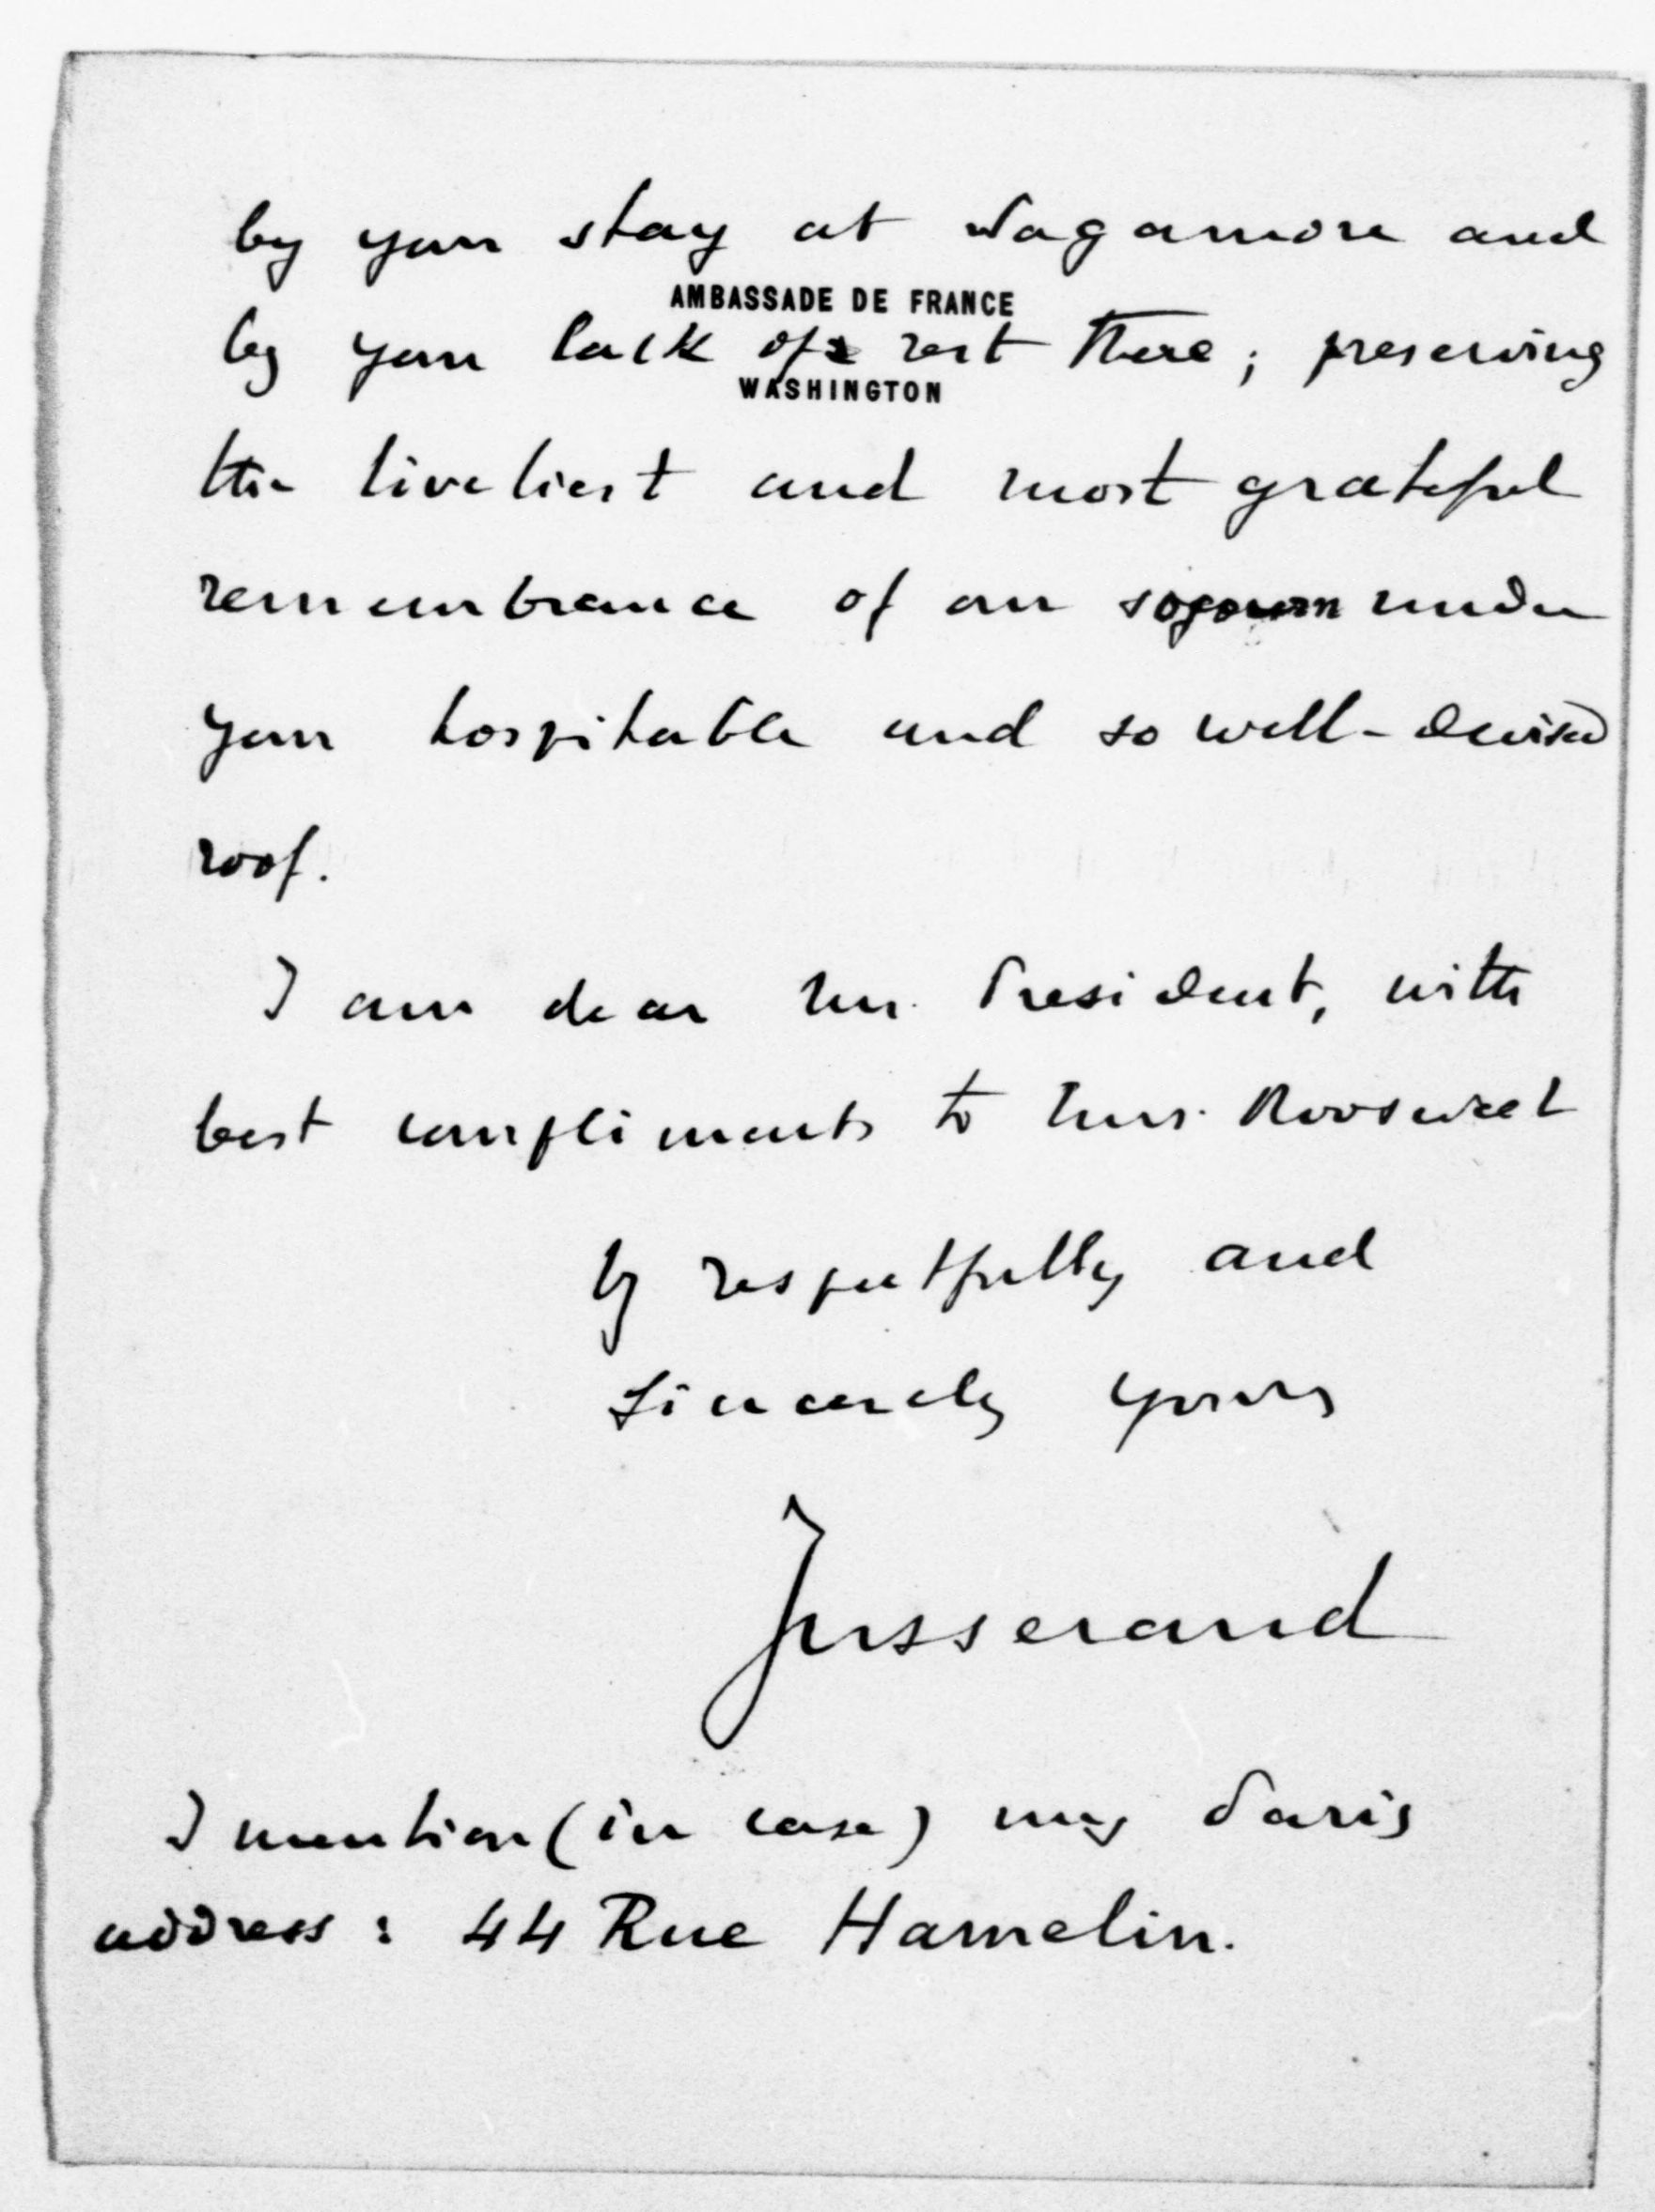 by your stay at Sagamore and
AMBASSADE DE FRANCE
by your lack of rest there; preserving
WASHINGTON
the liveliest and most grateful
remembrance of our sojourn under
your hospitable and so well-devised
roof.
I am dear Mr. President, with
best compliments to Mrs. Roosevelt
V respectfully and
Sincerely yours
Jusserand
I mention (in case) my Paris
address: 44 Rue Hamelin.